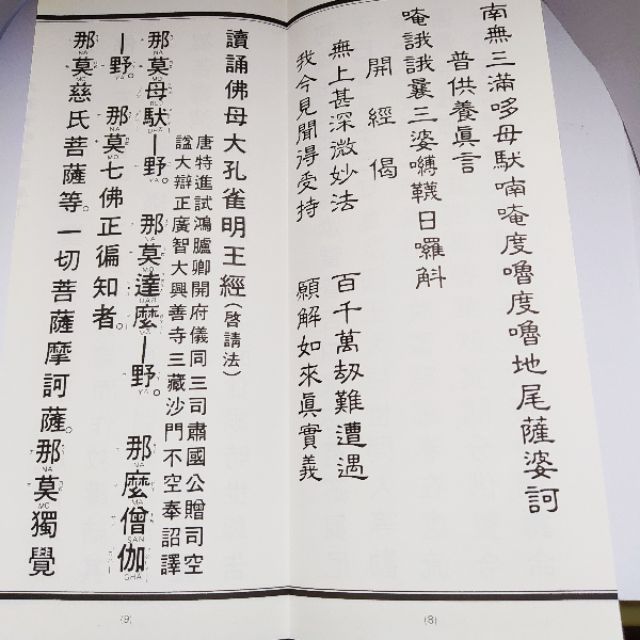 南無三滿哆母馱喃唵度嚕度嚕地尾薩婆訶
普供養眞言
唵誐誐曩三婆嚩韈日囉斛
開經偈
無上甚深微妙法 百千萬劫難遭遇
我今見聞得受持 願解如來眞實義
(8)
讀誦佛母大孔雀明王經(啓請法)
唐特進試鴻臚卿開府儀同三司肅國公贈司空
諡大辯正廣智大興善寺三藏沙門不空奉詔譯
那莫母馱|野。 那莫達麼|野。 那麼僧伽
|野。 那莫七佛正徧知者。
那莫慈氏菩薩等。一切菩薩摩訶薩。那莫獨覺
(9)